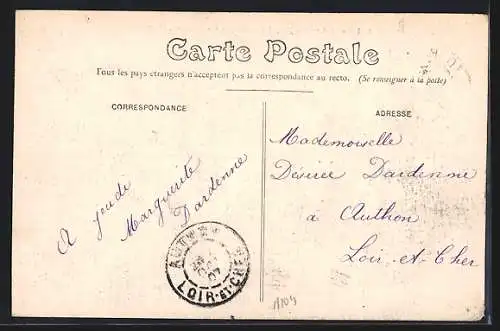 Carte Postale
Tous les pays étrangers n'acceptent pas la correspondance au recto. (Se renseigner à la poste)
CORRESPONDANCE
A jeudi
Marguerite
Dardenne
ADRESSE
Mademoiselle
Désirée Dardenne
à Authon
Loir-et-Cher
AUTHON
07
LOIR-ET-CHER